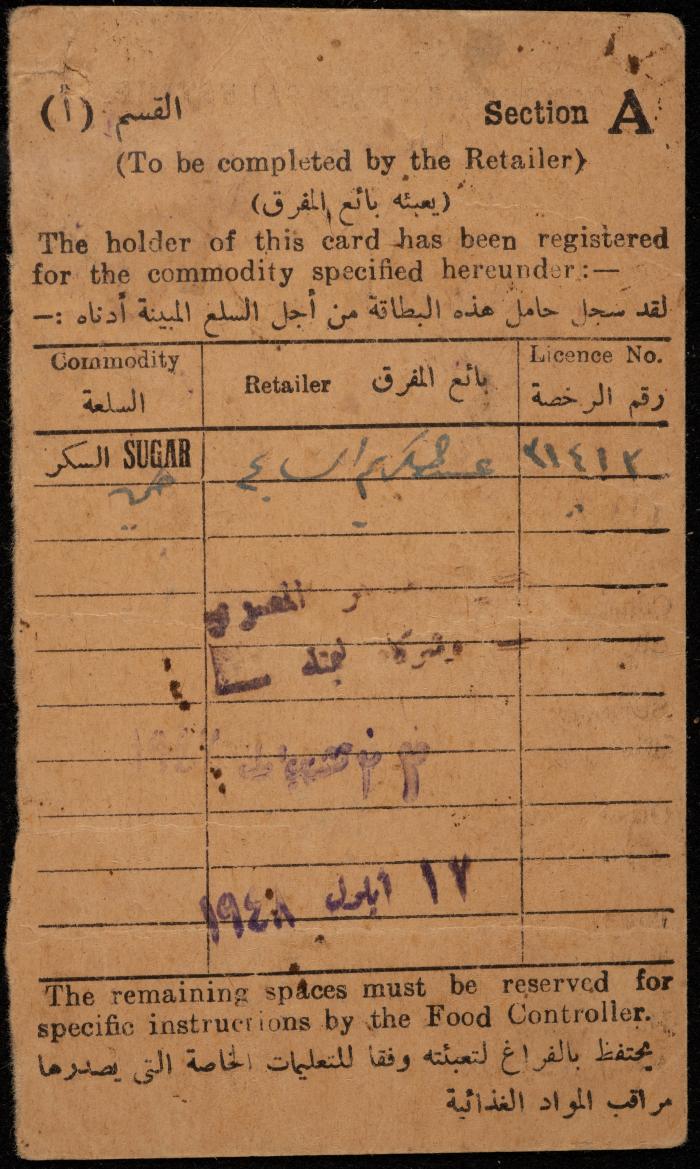 القسم (أ) Section A
(To be completed by the Retailer)
(يعبئه بائع المفرق)
The holder of this card has been registered
for the commodity specified hereunder:—
لقد سجل حامل هذه البطاقة من أجل السلع المبينة أدناه :—
Commodity السلعة
Retailer بائع المفرق
Licence No. رقم الرخصة
السكر SUGAR
٣١٤١٢
المصري
لجنة
١٧ ايلول ١٩٤٨
The remaining spaces must be reserved for
specific instructions by the Food Controller.
يحتفظ بالفراغ لتعبئته وفقا للتعليمات الخاصة التي يصدرها
مراقب المواد الغذائية